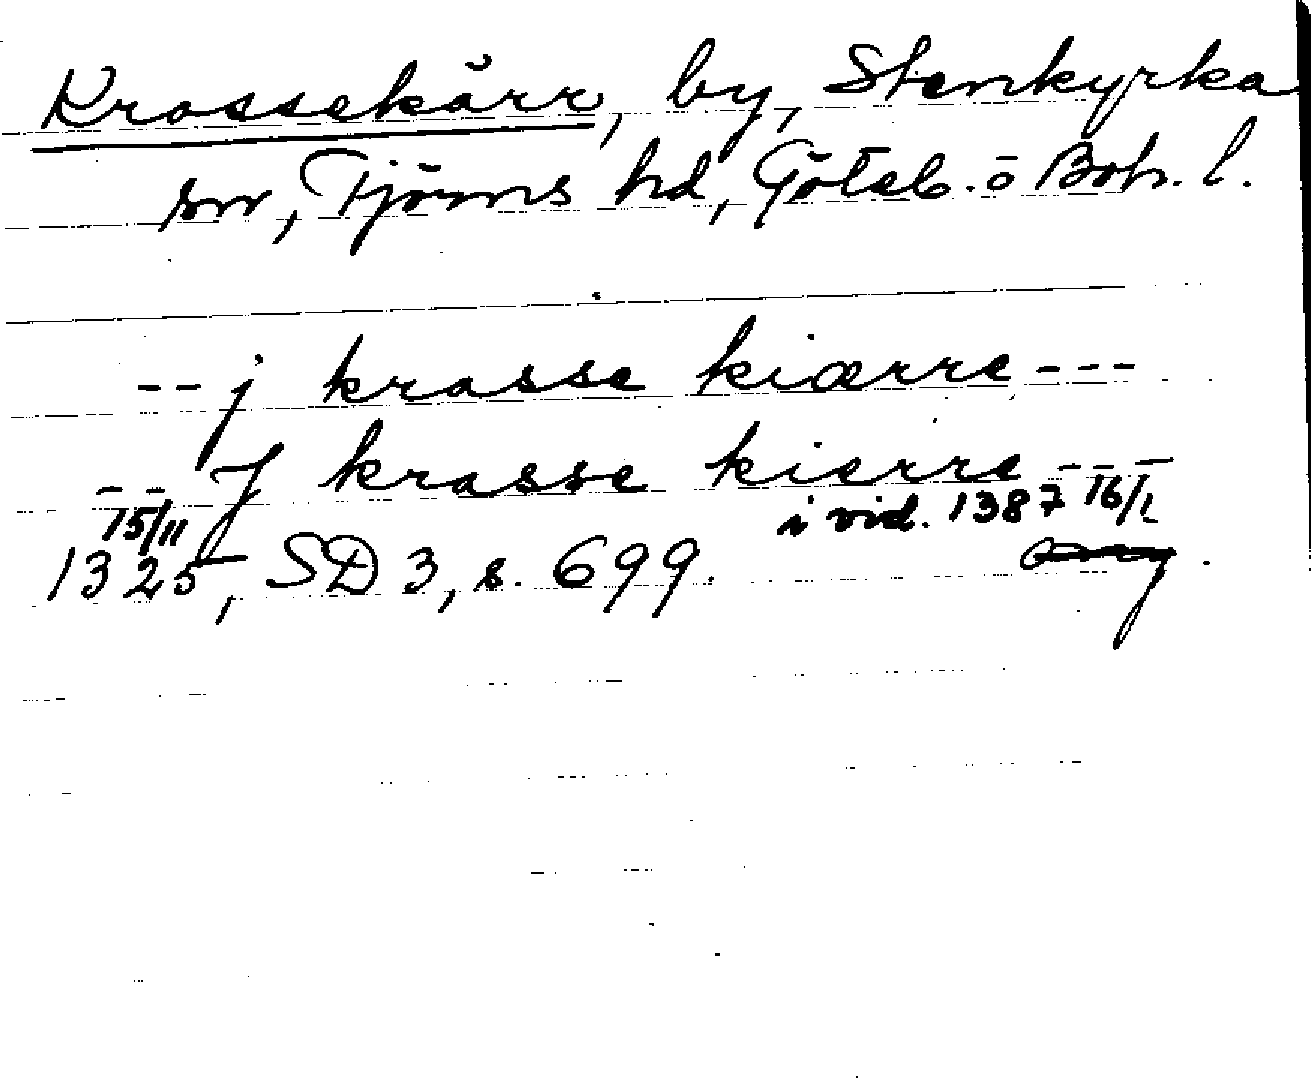 Krossekärr, by, Stenkyrka
sn, Tjörns hd, Göteb. o Boh. l.
-- j krasse kiærre ---
-- J krasse kierre ---
15/11 i vid. 1387 16/1
1325, SD 3, s. 699.